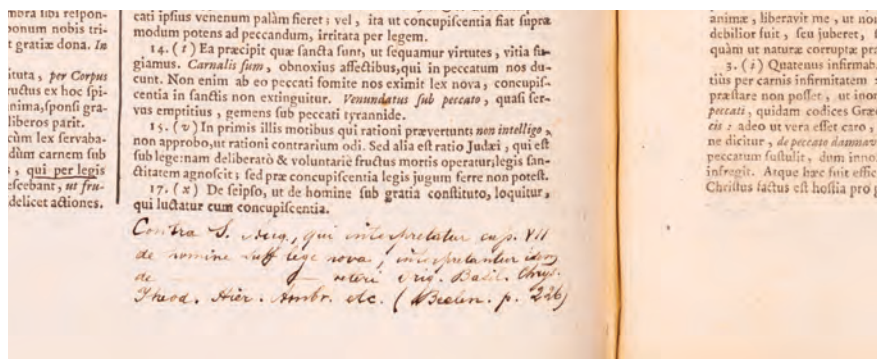 mbra sibi respon-
ponum nobis tri-
t gratiæ dona. In
ituta, per Corpus
ructus ex hoc spi-
nima, sponsi gra-
liberos parit.
cùm lex servaba-
dùm carnem sub
, qui per legis
escebant, ut fru-
delicet actiones.
cati ipsius venenum palàm fieret; vel, ita ut concupiscentia fiat supra
modum potens ad peccandum, irritata per legem.
14. (t) Ea præcipit quæ sancta sunt, ut sequamur virtutes, vitia fu-
giamus. Carnalis sum, obnoxius affectibus, qui in peccatum nos du-
cunt. Non enim ab eo peccati fomite nos eximit lex nova, concupis-
centia in sanctis non extinguitur. Venundatus sub peccato, quasi ser-
vus emptitius, gemens sub peccati tyrannide.
15. (v) In primis illis motibus qui rationi prævertunt: non intelligo,
non approbo, ut rationi contrarium odi. Sed alia est ratio Judæi, qui est
sub lege: nam deliberatò & voluntariè fructus mortis operatur, legis san-
ctitatem agnoscit; sed præ concupiscentia legis jugum ferre non potest.
17. (x) De seipso, ut de homine sub gratia constituto, loquitur,
qui luctatur cum concupiscentia.
Contra S. Aug., qui interpretatur cap. VII
de homine sub lege nova, interpretantur idem
de — veteri Orig. Basil. Chrys.
Theod. Hier. Ambr. etc. (Beelen. p. 226)
animæ, liberavit me, ut non
debilior fuit, seu juberet,
quàm ut naturæ corruptæ
3. (i) Quatenus infirmab
tiùs per carnis infirmitatem
præstare non posset, ut
peccati, quidam codices
cis: adeo ut vera esset caro,
ne dicitur, de peccato damnav
peccatum sustulit, dum
infregit. Atque hæc fuit
Christus factus est hostia pro